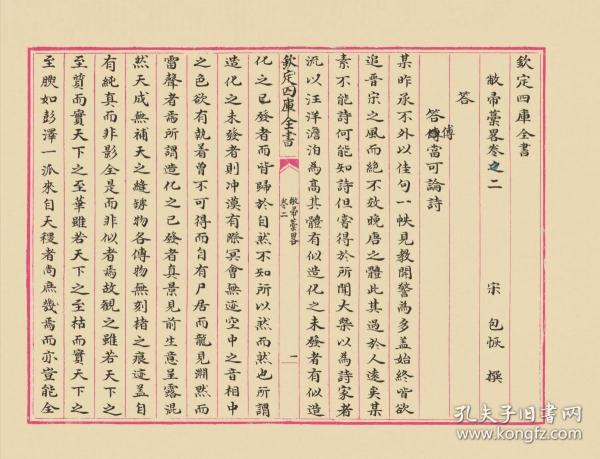 欽定四庫全書
敝帚藁畧卷之二
宋 包恢 撰
答
答傅當可論詩
某昨承不外以佳句一帙見教開警為多蓋始終皆欲
追晉宋之風而絶不效晚唐之體此其過於人遠矣某
素不能詩何能知詩但嘗得於所聞大槩以為詩家者
流以汪洋澹泊為髙其體有似造化之未發者有似造
欽定四庫全書
敝帚藁畧
卷二
一
化之已發者而皆歸於自然不知所以然而然也所謂
造化之未發者則冲漠有際冥會無迹空中之音相中
之色欲有執着曾不可得而自有尸居而龍見淵然而
雷聲者焉所謂造化之已發者真景見前生意呈露混
然天成無補天之縫罅物各傳物無刻楮之痕迹蓋自
有純真而非影全是而非似者焉故觀之雖若天下之
至質而實天下之至華雖若天下之至枯而實天下之
至腴如彭澤一派來自天稷者尚庶幾焉而亦豈能全
孔夫子旧书网
www.kongfz.com